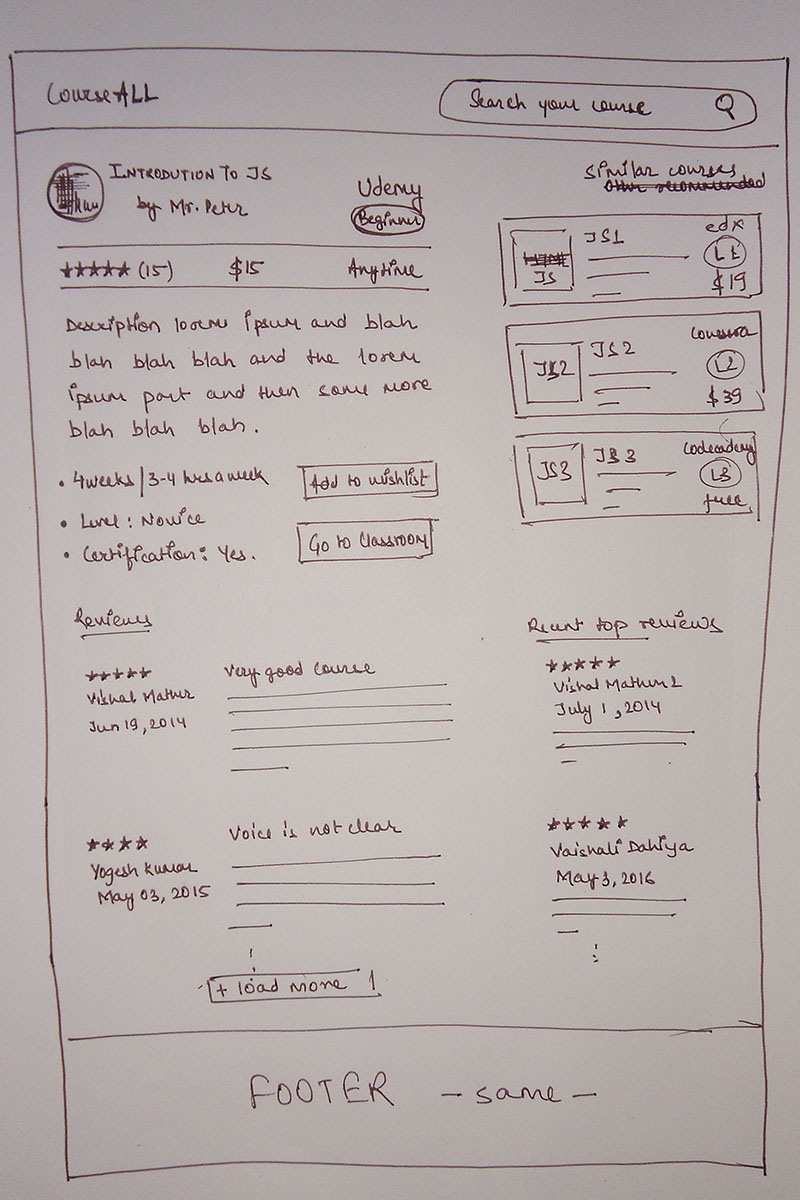 CourseALL
Search your course
INTRODUTION TO JS
by Mr. Peter
Udemy
Beginner
★★★★★ (15) $15 Anytime
Description lorem ipsum and blah
blah blah blah and the lorem
ipsum part and then some more
blah blah blah.
• 4weeks | 3-4 hrs a week
• Level : Novice
• Certification : Yes.
Add to wishlist
Go to Classroom
Similar courses
other recommended
JS
JS1
edX
L1
$19
JS2
JS2
coursera
L2
$39
JS3
JS3
Codecademy
L3
free
Reviews
★★★★★
Vishal Mathur
Jun 19, 2014
Very good course
★★★★
Yogesh Kumar
May 03, 2015
Voice is not clear
+ load more
Recent top reviews
★★★★★
Vishal Mathur 2
July 1, 2014
★★★★★
Vaishali Dahiya
May 3, 2016
FOOTER - same -